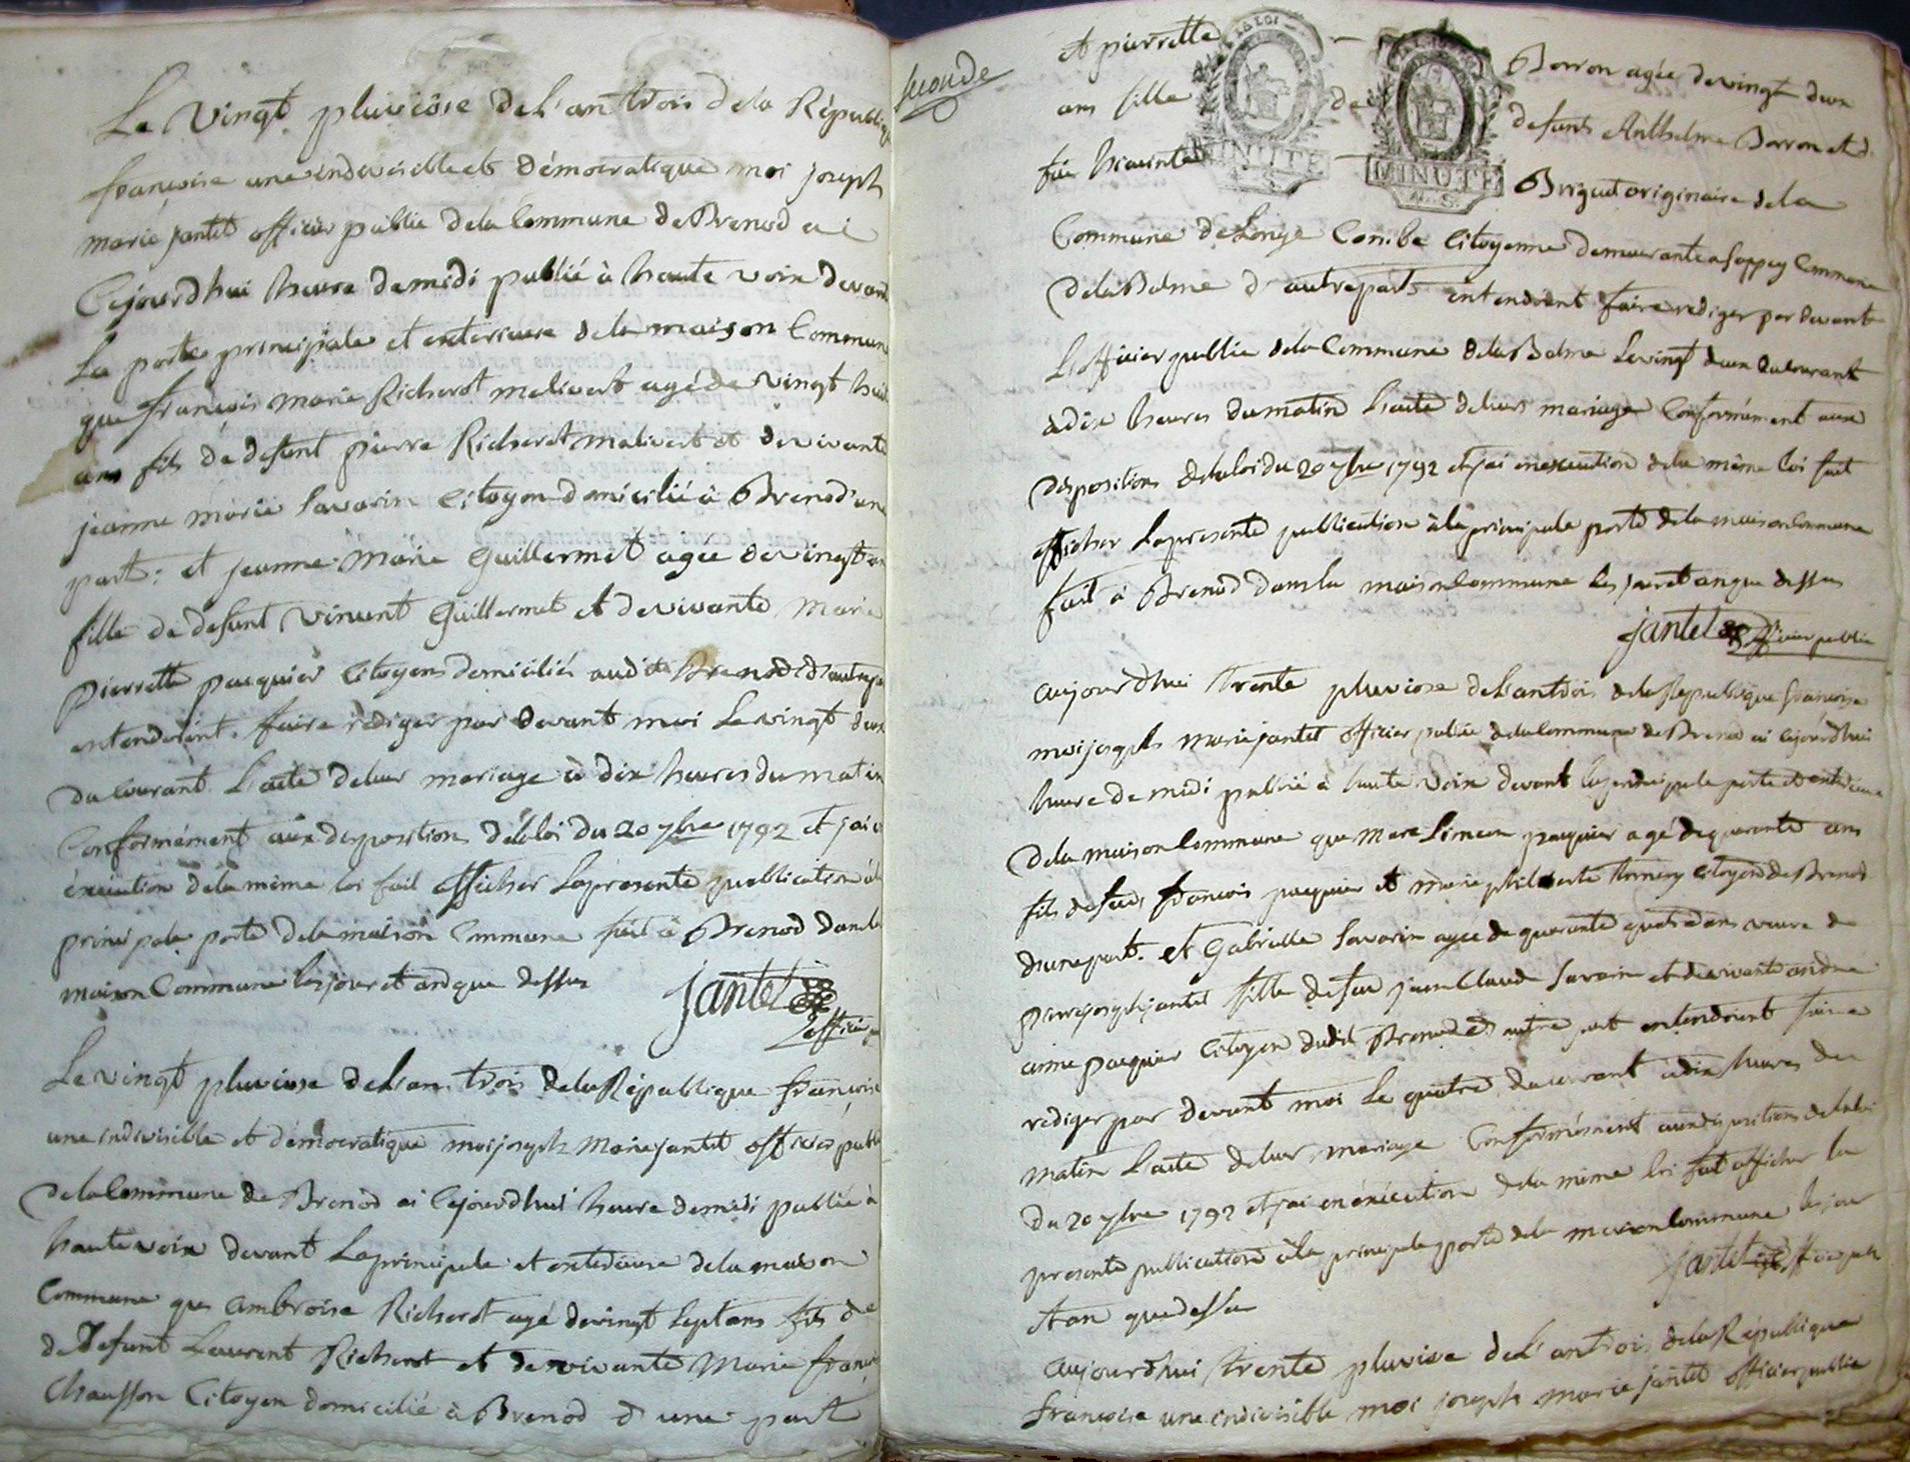 Le vingt pluviôse de l'an trois de la Républiq
françoise une indivisible et démocratique moi joseph
marie jantet officier public de la Commune de Brenod ai
Cejourdhui heure de midi publié à haute voix devant
La porte principale et exterieure de la maison Commune
que françois marie Richerot malivert agé de vingt huit
ans fils de defunt pierre Richerot malivert et de vivante
jeanne marie Savarin Citoyen domicilié à Brenod d'une
part; et jeanne Marie Guillermet agée de vingt
fille de defunt Vincent Guillermet et de vivante Marie
pierrette pacquier Citoyens domiciliés audit Brenod d'autrepa
entendoint faire rediger par devant moi Le vingt deux
du Courant L'acte de leur mariage à dix heures du matin
Conformément aux disposition de la loi du 20 7bre 1792 et jai
éxécution de la même loi fait afficher La presente publication à la
principale porte de la maison Commune fait à Brenod dans la
maison Commune les jour et an que dessus
jantet
officier
Le vingt pluviose de L'an trois de la République françoise
une indivisible et démocratique moi joseph Marie jantet officier publi
de la Commune de Brenod ai Cejourdhui heure de midi publié à
haute voix devant La principale et exterieure de la maison
Commune que ambroise Richerot agé de vingt Sept ans fils de
de Defunt Laurent Richerot et de vivante Marie françoi
Chausson Citoyen domicilié à Brenod d'une part
Seconde
et pierrette Borron agée de vingt deux
ans fille de defunts Anthelme Borron et d
MINUTE MINUTE
Briquet originaire de la
Commune de Longe Combe Citoyenne demeurante a Soppey Commune
de la Balme d'autreparts entendoint faire rediger par devant
L'officier public de la Commune de la Balme Le vingt deux du Courant
a dix heures du matin L'acte de leur mariage Conformément aux
dispositions de la loi du 20 7bre 1792 et jai en execution de la même loi fait
afficher La presente publication à la principale porte de la maison Commune
fait à Brenod dans la maison Commune les jour et an que dessus
jantet officier public
aujourdhui trente pluviose de L'an trois de la Republique françoise
moi joseph marie jantet officier public de la Commune de Brenod ai cejourdhui
heure de midi publié à haute voix devant la principale porte et exterieure
de la maison Commune que Marc Simeon pacquier agé de quarante ans
fils de feu françois pacquier et Marie philiberte Citoyen de Brenod
d'une part. et Gabrielle Savarin agée de quarante quatre ans veuve de
pierre joseph jantet fille de feu jean Claude Savarin et de vivante andrea
anne pacquier Citoyen dudit Brenod d'autre part entendoient faire
rediger par devant moi Le quatre du courant à dix heures du
matin L'acte de leur mariage Conformément aux dispositions de la loi
du 20 7bre 1792 et jai en éxécution de la même loi fait afficher la
presente publication à la principale porte de la maison Commune le jour
et an que dessus
jantet officier publi
aujourdhui trente pluviose de L'an trois de la République
françoise une indivisible moi joseph marie jantet officier public